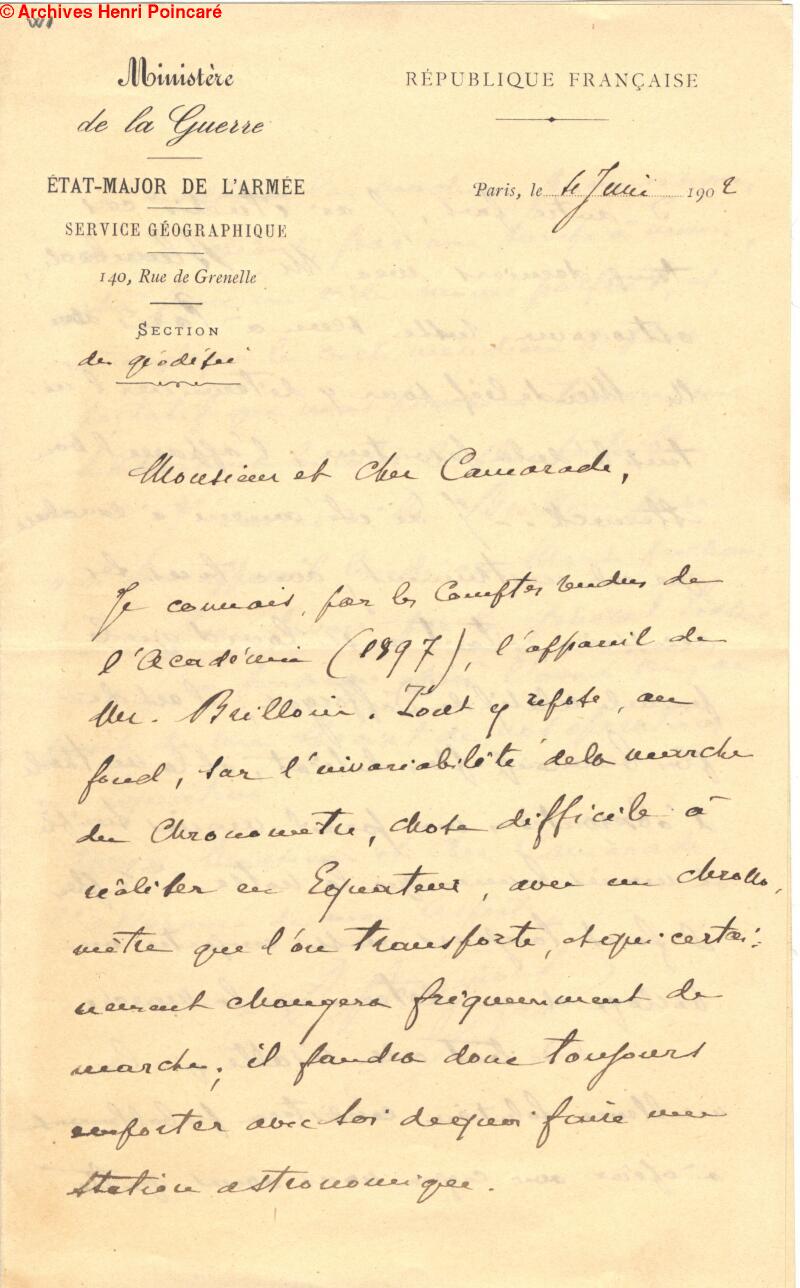 © Archives Henri Poincaré
Ministère
de la Guerre
ÉTAT-MAJOR DE L'ARMÉE
SERVICE GÉOGRAPHIQUE
140, Rue de Grenelle
SECTION
de géodésie
RÉPUBLIQUE FRANÇAISE
Paris, le 4 Juin 1902
Monsieur et cher Camarade,
Je connais, par les Comptes rendus de
l'Académie (1897), l'appareil de
Mr. Brillouin. Tout y repose, au
fond, sur l'invariabilité de la marche
du Chronomètre, chose difficile à
réaliser en Equateur, avec un chrono-
mètre que l'on transporte, et qui certai-
nement changera fréquemment de
marche; il faudra donc toujours
emporter avec soi de quoi faire une
station astronomique.